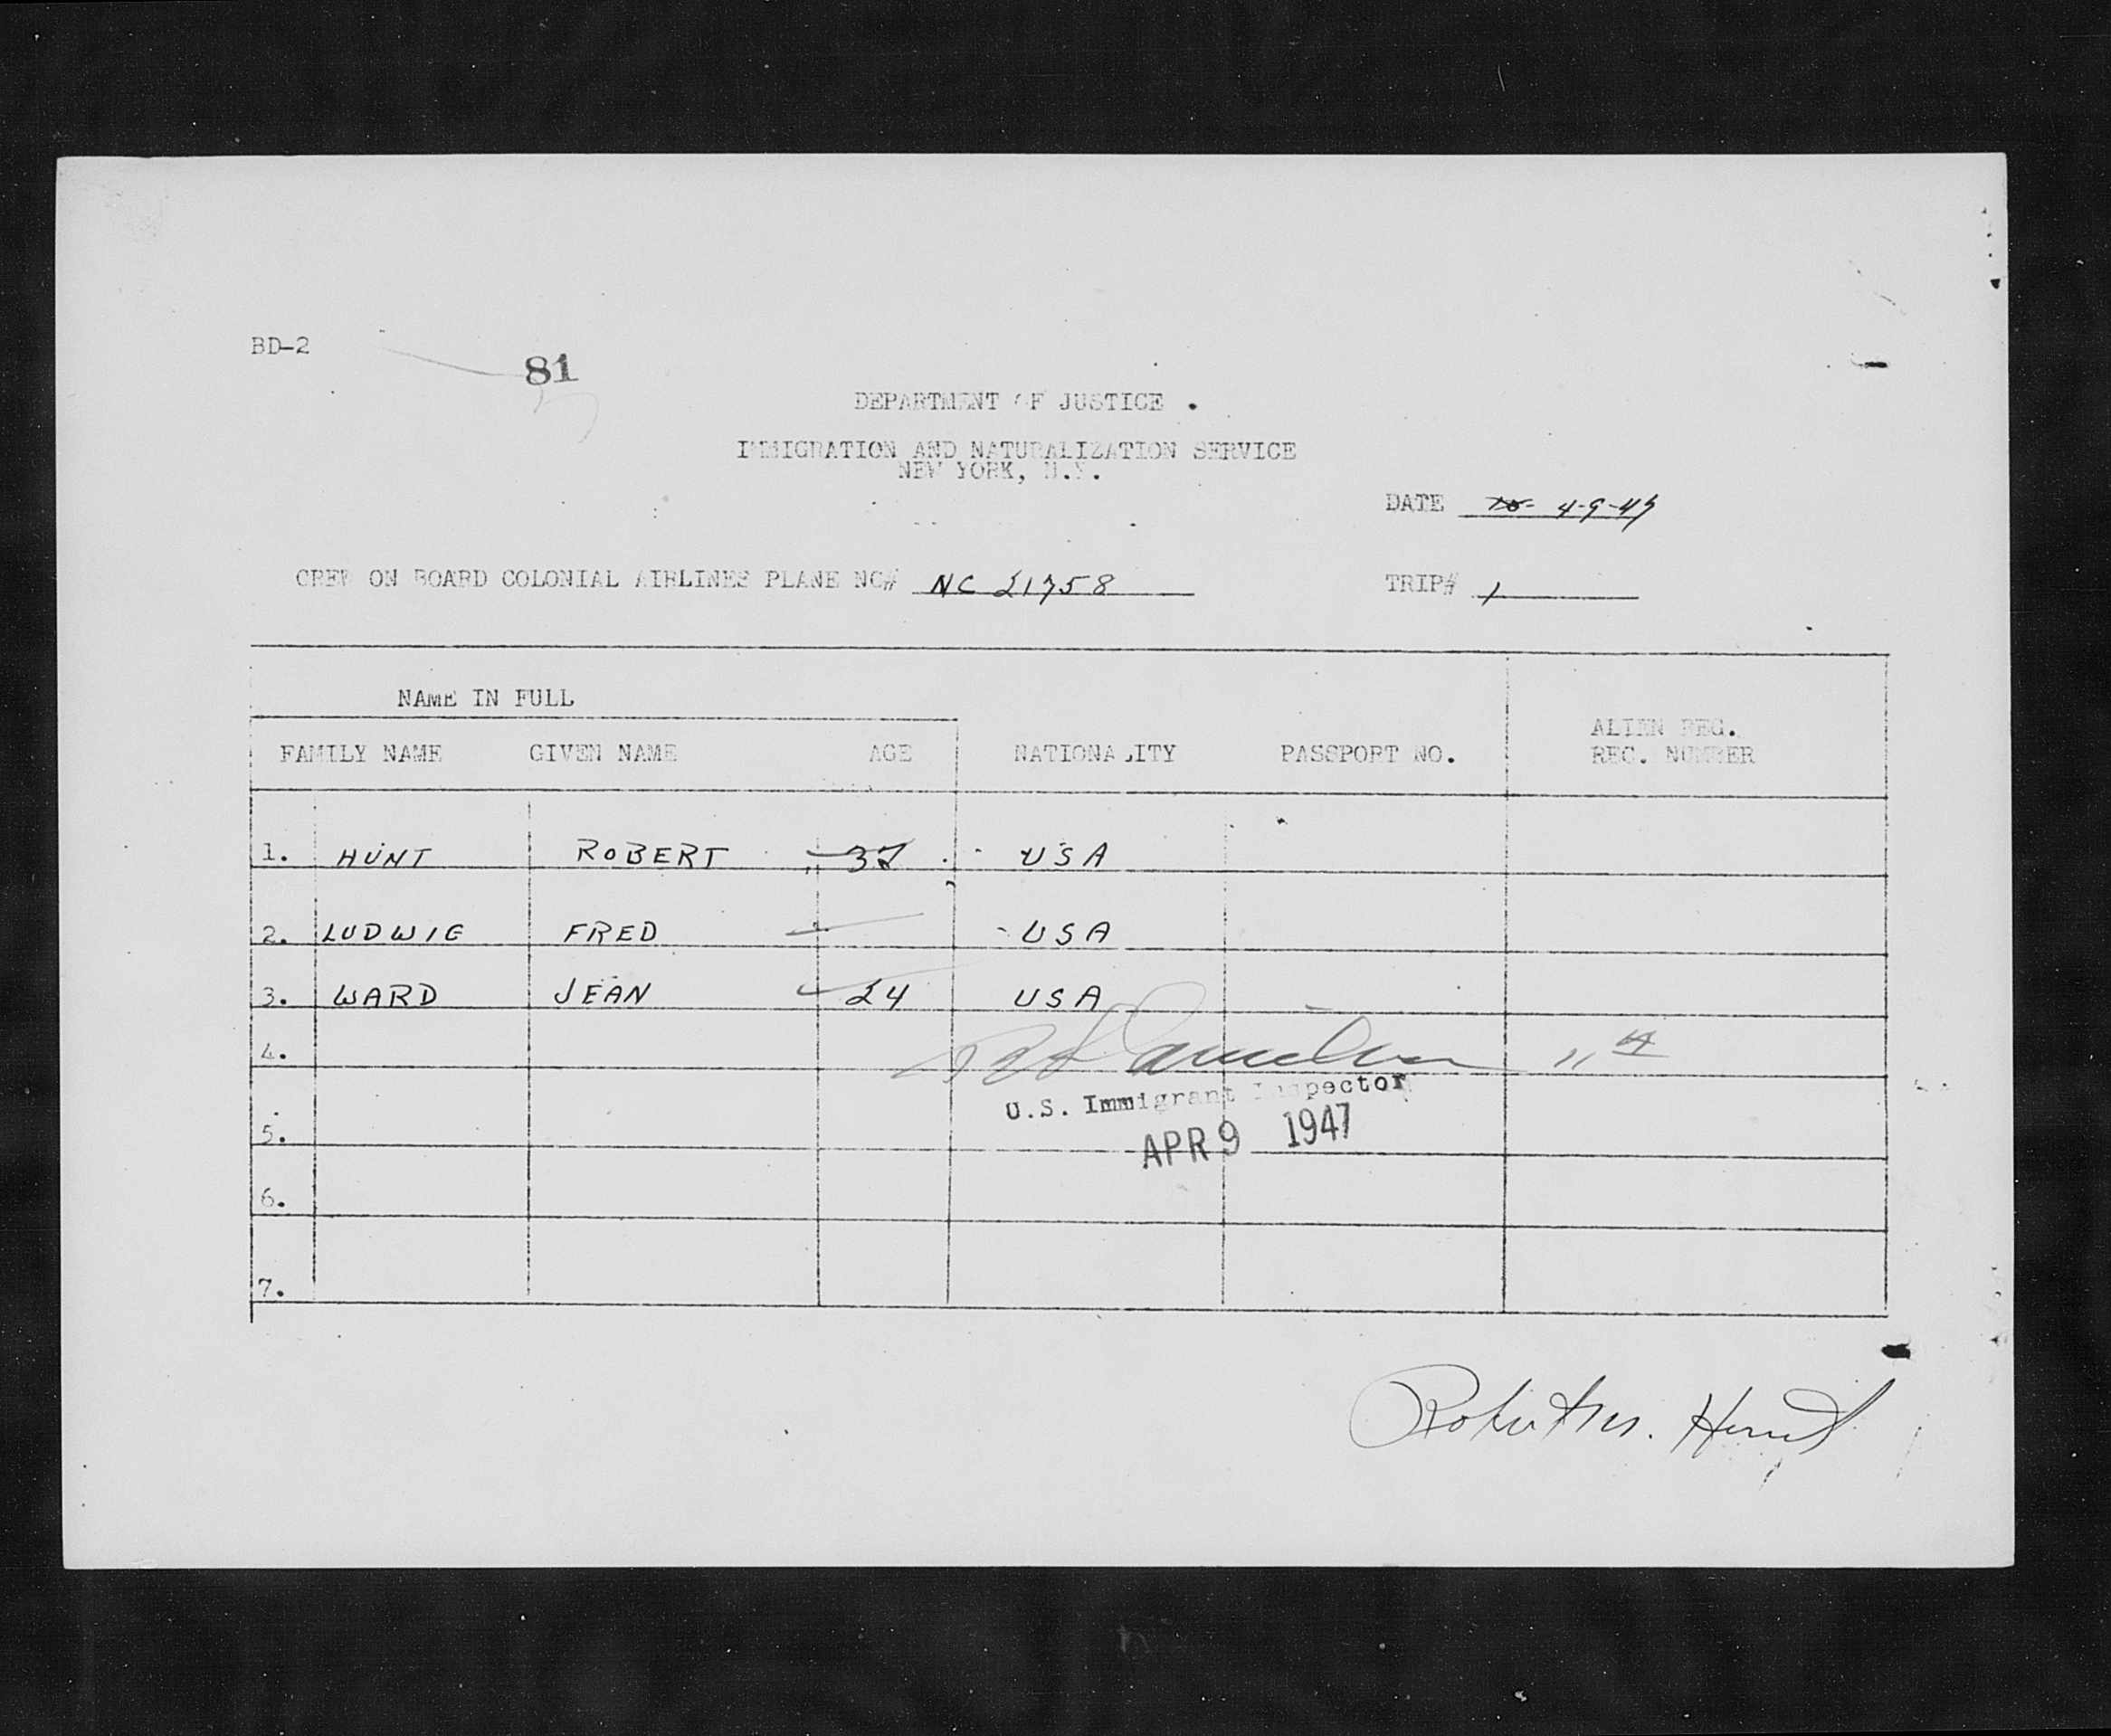 BD-2
81
DEPARTMENT OF JUSTICE
IMMIGRATION AND NATURALIZATION SERVICE
NEW YORK, N.Y.
DATE 4-9-47
CREW ON BOARD COLONIAL AIRLINES PLANE NO# NC 21758
TRIP# 1
NAME IN FULL
FAMILY NAME GIVEN NAME AGE NATIONALITY PASSPORT NO. ALIEN REG. REC. NUMBER
1. HUNT ROBERT 32 USA
2. LUDWIG FRED USA
3. WARD JEAN 24 USA
4.
U.S. Immigrant Inspector
5.
APR 9 1947
6.
7.
Robert M. Hunt